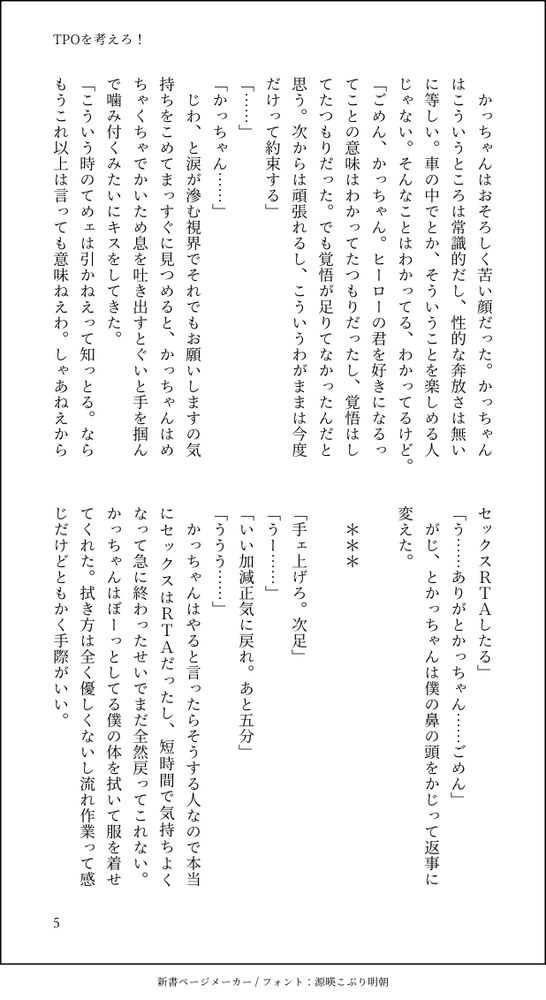 TPOを考えろ！
　かっちゃんはおそろしく苦い顔だった。かっちゃん
はこういうところは常識的だし、性的な奔放さは無い
に等しい。車の中でとか、そういうことを楽しめる人
じゃない。そんなことはわかってる、わかってるけど。
「ごめん、かっちゃん。ヒーローの君を好きになるっ
てことの意味はわかってたつもりだったし、覚悟はし
てたつもりだった。でも覚悟が足りてなかったんだと
思う。次からは頑張れるし、こういうわがままは今度
だけって約束する」
「……」
「かっちゃん……」
　じわ、と涙が滲む視界でそれでもお願いしますの気
持ちをこめてまっすぐに見つめると、かっちゃんはめ
ちゃくちゃでかいため息を吐き出すとぐいと手を掴ん
で噛み付くみたいにキスをしてきた。
「こういう時のてめェは引かねえって知っとる。なら
もうこれ以上は言っても意味ねえわ。しゃあねえから
セックスＲＴＡしたる」
「う……ありがとかっちゃん……ごめん」
　がじ、とかっちゃんは僕の鼻の頭をかじって返事に
変えた。
＊＊＊
「手ェ上げろ。次足」
「うー……」
「いい加減正気に戻れ。あと五分」
「ううう……」
　かっちゃんはやると言ったらそうする人なので本当
にセックスはＲＴＡだったし、短時間で気持ちよく
なって急に終わったせいでまだ全然戻ってこれない。
かっちゃんはぼーっとしてる僕の体を拭いて服を着せ
てくれた。拭き方は全く優しくないし流れ作業って感
じだけどともかく手際がいい。
5
新書ページメーカー / フォント：源暎こぶり明朝